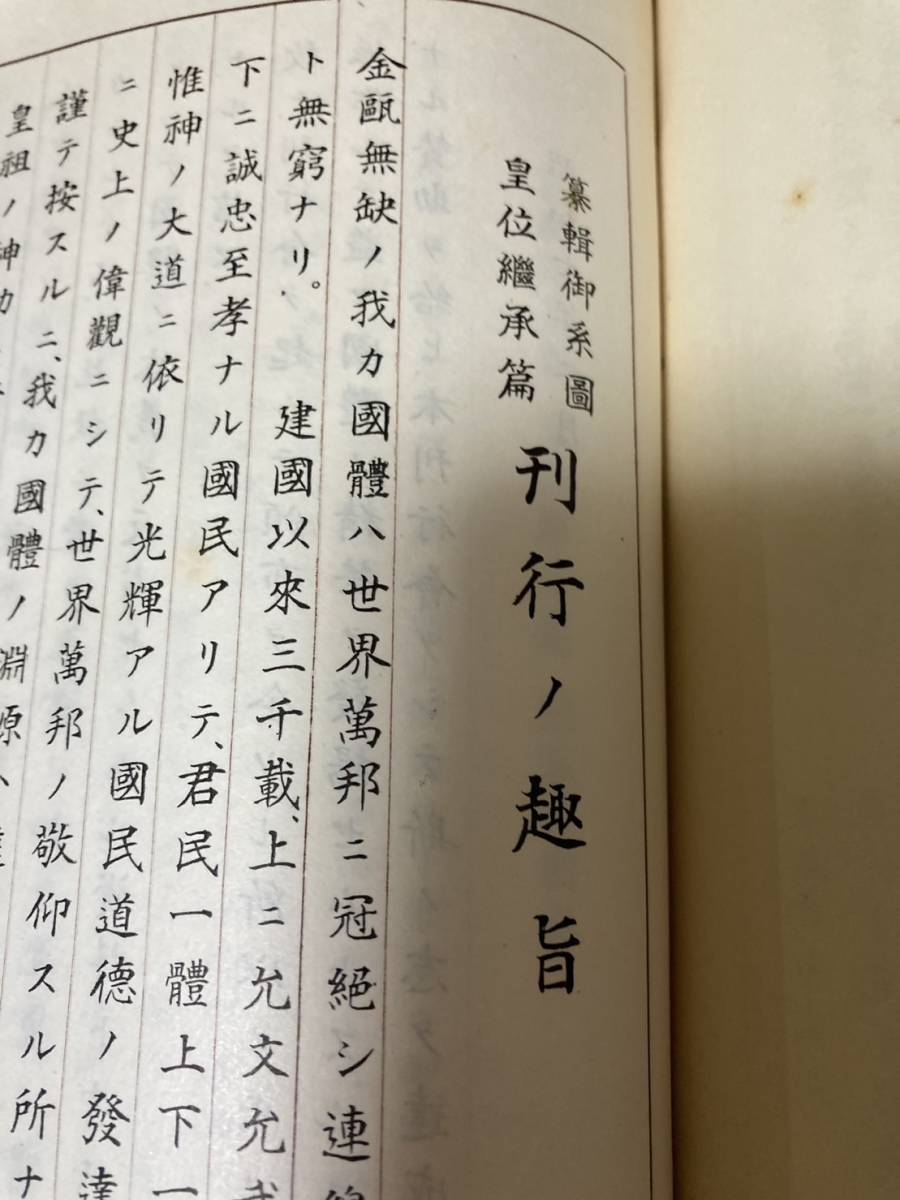 纂輯御系圖
皇位繼承篇
刊行ノ趣旨
金甌無缺ノ我カ國體ハ世界萬邦ニ冠絕シ連綿
ト無窮ナリ。建國以來三千載、上ニ允文允武
下ニ誠忠至孝ナル國民アリテ、君民一體上下一
惟神ノ大道ニ依リテ光輝アル國民道德ノ發達
ニ史上ノ偉觀ニシテ、世界萬邦ノ敬仰スル所ナ
謹テ按スルニ、我カ國體ノ淵源ハ
皇祖ノ神